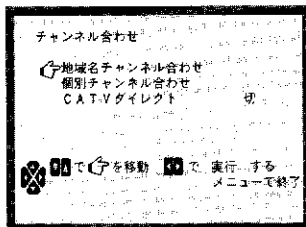 チャンネル合わせ
地域名チャンネル合わせ
個別チャンネル合わせ
CATVダイレクト 切
で を移動 で 実行 する
メニューで終了